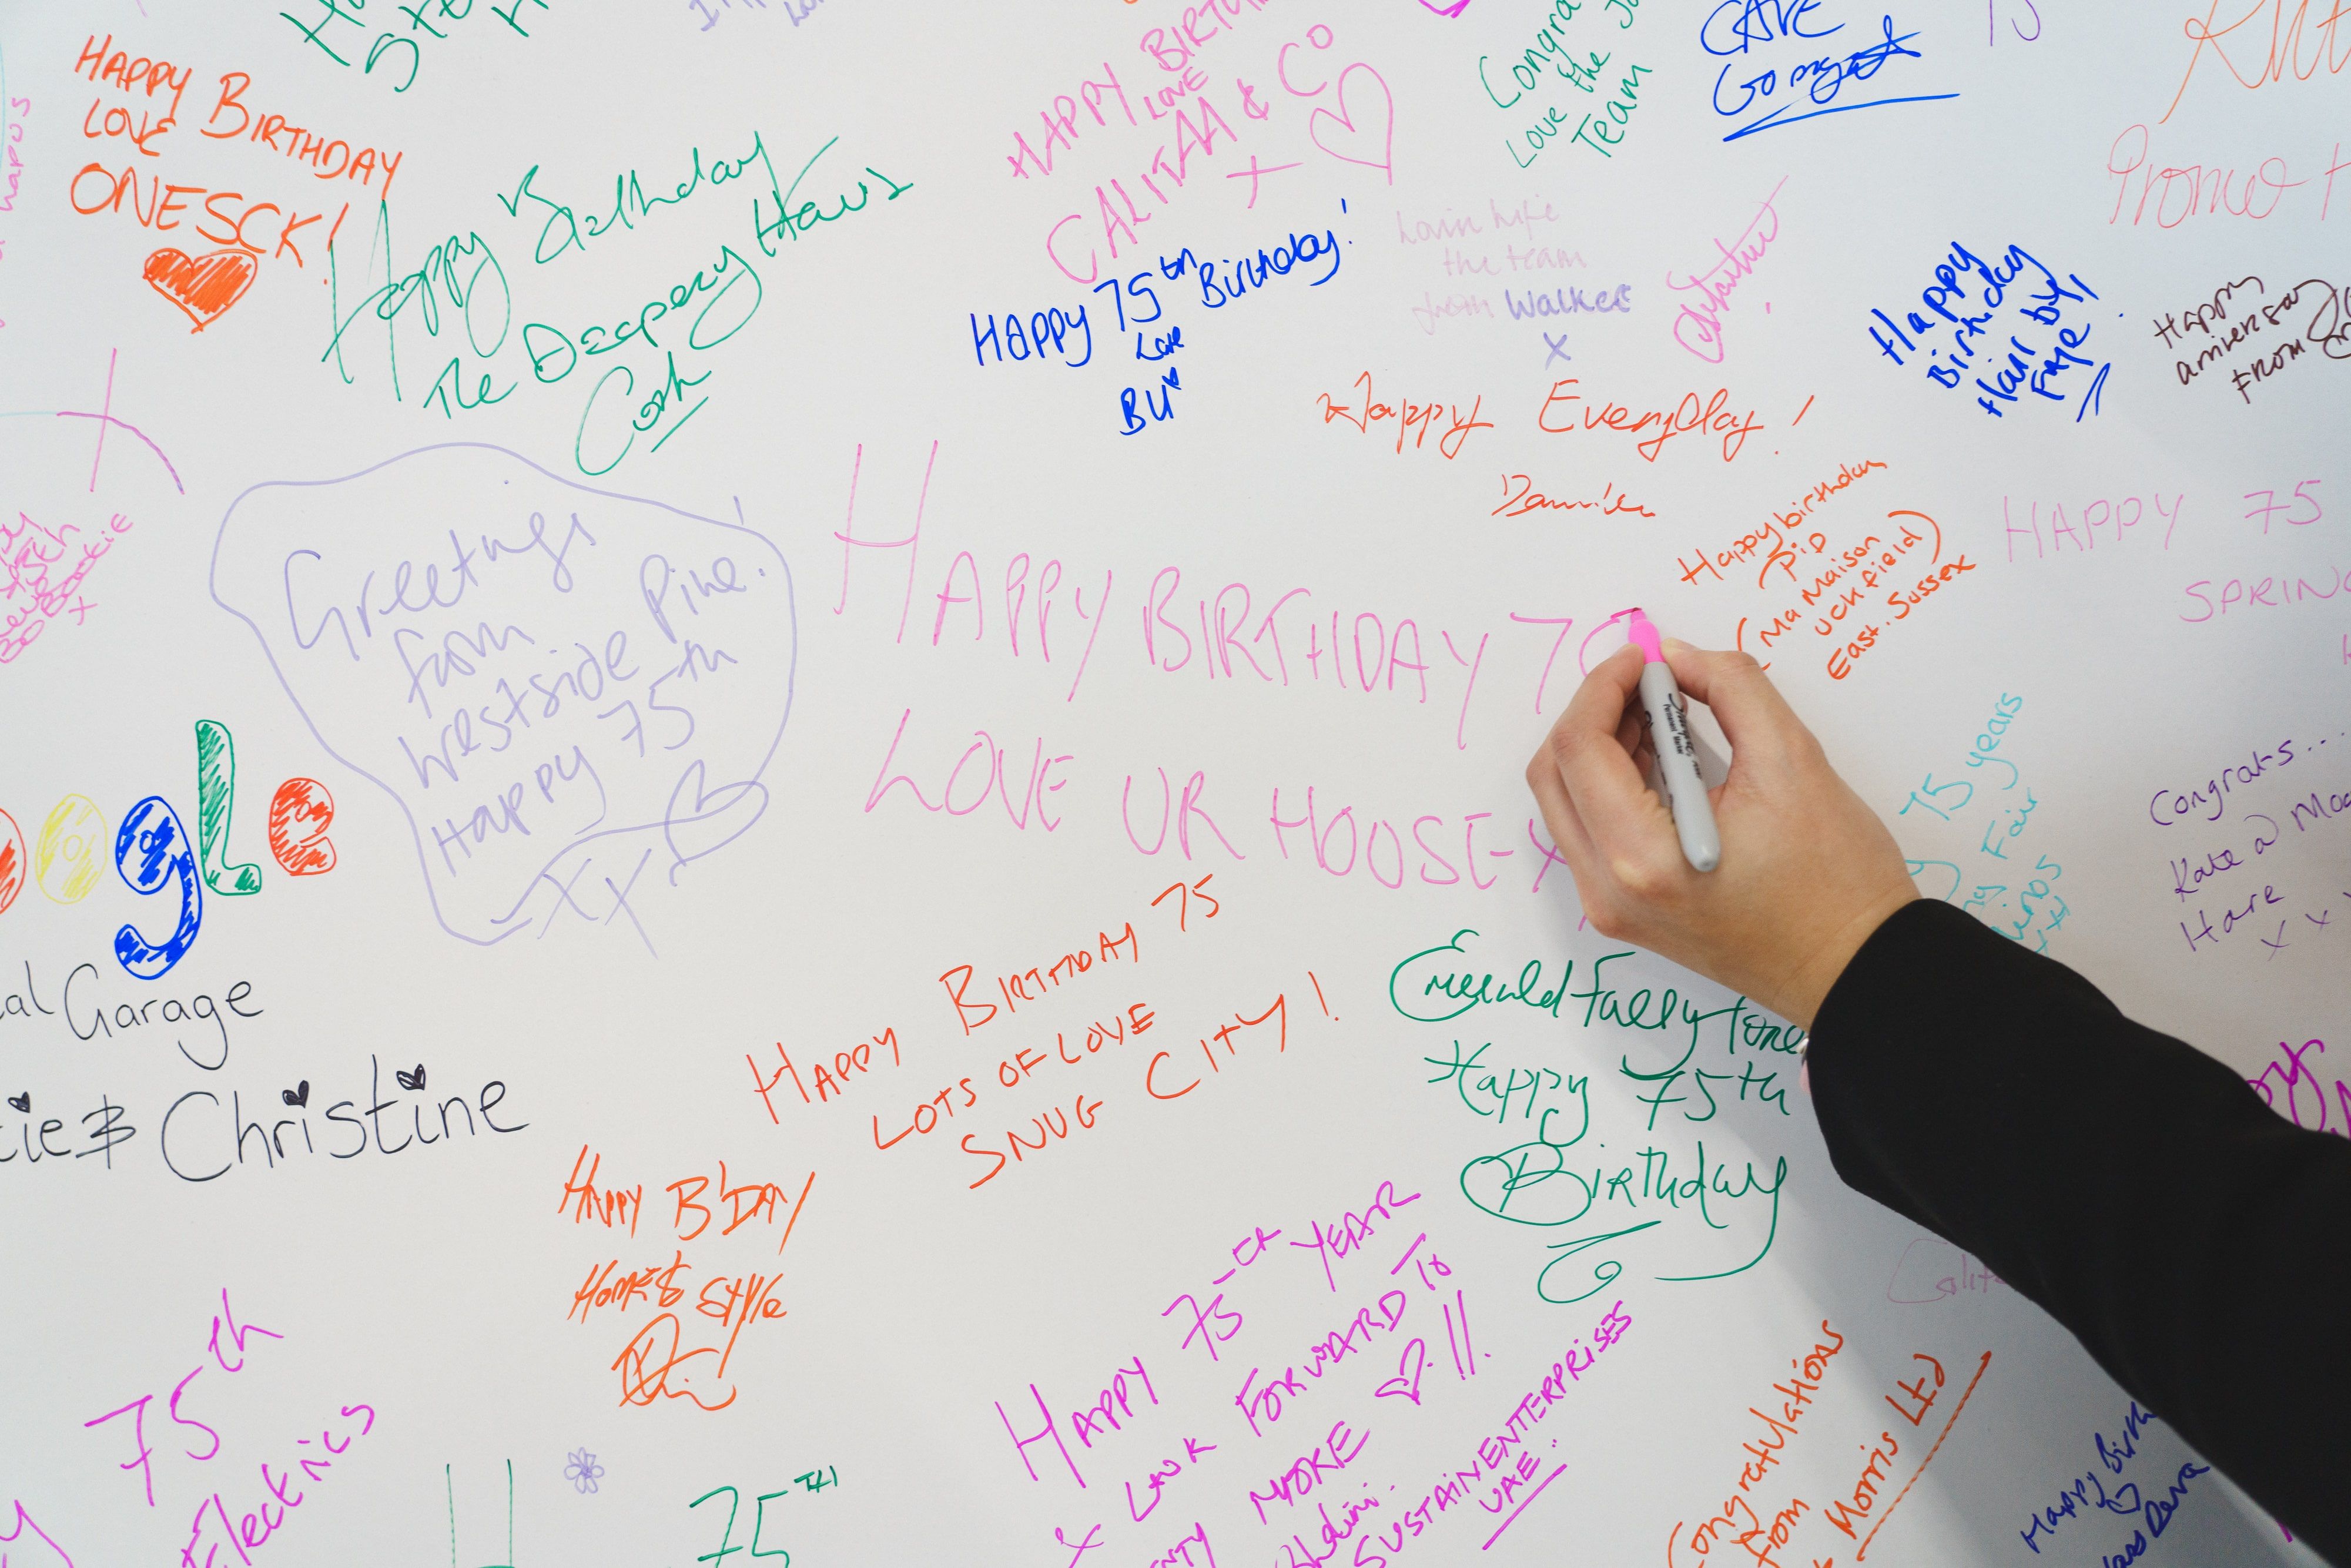 HAPPY BIRTHDAY
LOVE
ONESCK!
Happy Birthday
The Drapery Haus
Cork
HAPPY
LOVE
CALITAA & CO
X
Love the
Team
Happy 75th Birthday!
Love
BU
the team
from Walker
x
Happy
Birthday
Hair by
Faye
Happy
anniversary
FROM
Happy EveryDay!
Happy birthday
Pip
(Ma Maison
Uckfield)
East. Sussex
HAPPY 75
Greetings
from
Westside Pine.
Happy 75th
XX
HAPPY BIRTHDAY 7
LOVE UR HOOSE X
75 years
Fair
Congrats...
Kate @ Mad
Hare
x x
ogle
Garage
& Christine
HAPPY BIRTHDAY 75
LOTS OF LOVE
SNUG CITY!
Happy 75th
Birthday
HAPPY B'DAY
Home & Style
HAPPY 75th YEAR
& LOOK FORWARD TO
MORE
SUSTAIN ENTERPRISES
UAE
75th
Electrics
75TH
Congratulations
From
Morris Ltd
Happy